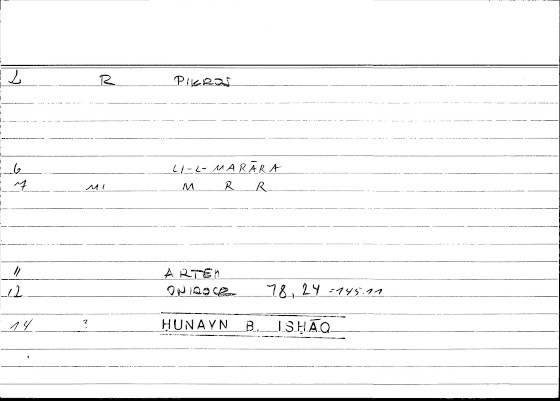 2 R PIKROS
6 LI-L-MARĀRA
7 MI M R R
11 ARTEM
12 ONIROCR 78,24 = 145.11
14 ? ḤUNAYN B. ISḤĀQ